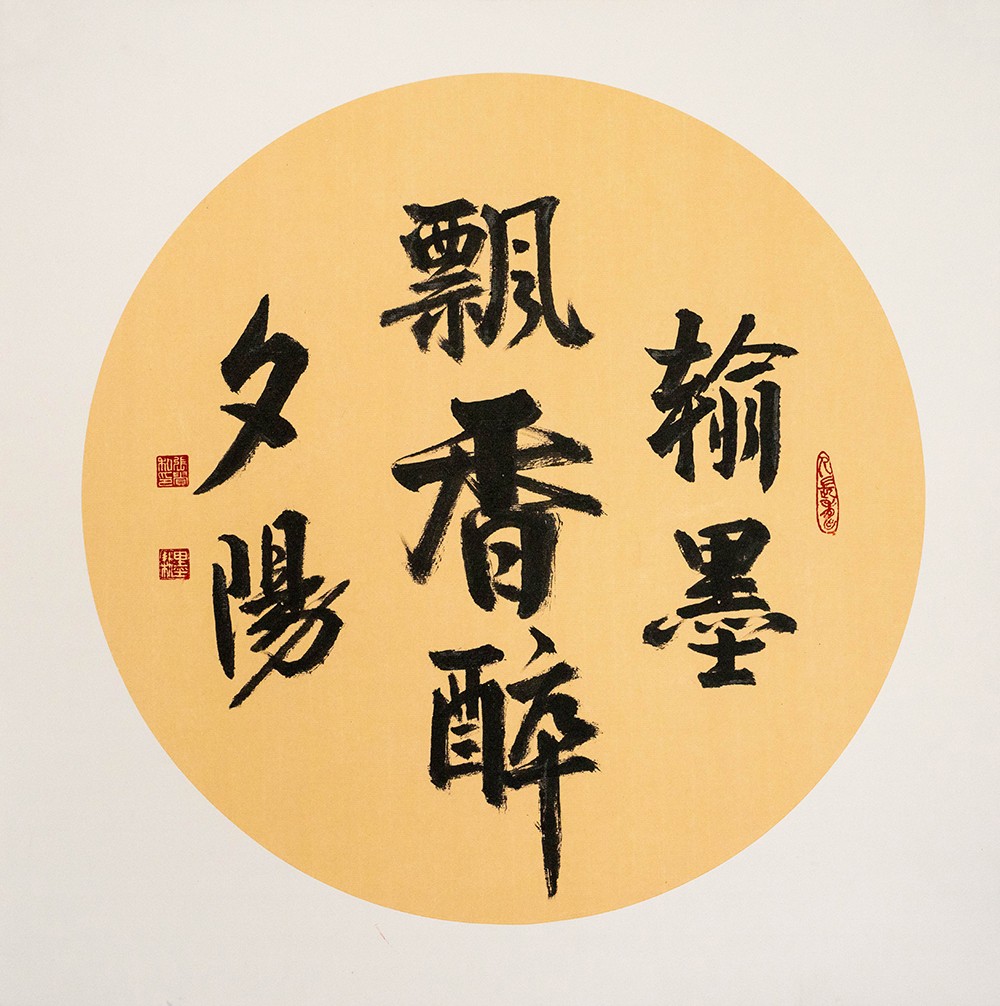 翰墨
飄香醉
夕陽